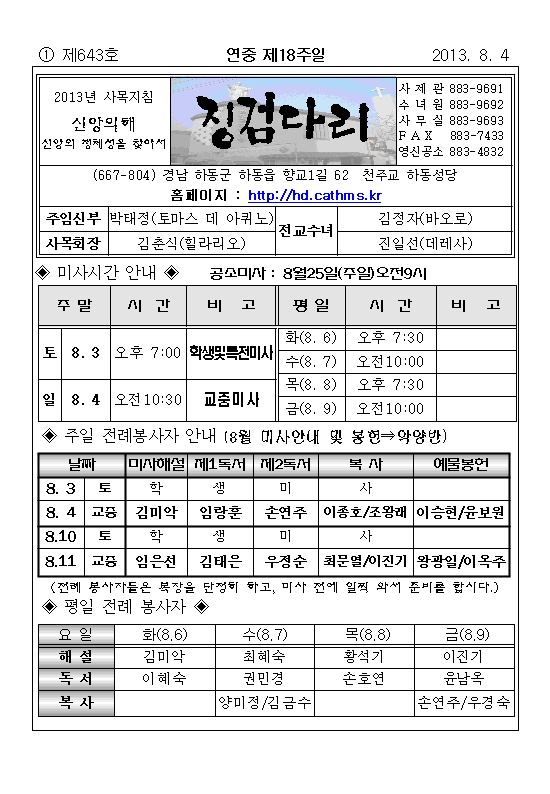 ① 제643호 연중 제18주일 2013. 8. 4
2013년 사목지침
신앙의해
신앙의 정체성을 찾아서
징검다리
사 제 관 883-9691
수 녀 원 883-9692
사 무 실 883-9693
F A X 883-7433
영신공소 883-4832
(667-804) 경남 하동군 하동읍 향교1길 62 천주교 하동성당
홈페이지 : http://hd.cathms.kr
주임신부 박태정(토마스 데 아퀴노) 전교수녀 김정자(바오로)
사목회장 김춘식(힐라리오) 진일선(데레사)
◈ 미사시간 안내 ◈ 공소미사 : 8월25일(주일)오전9시
주 말 시 간 비 고 평 일 시 간 비 고
토 8. 3 오후 7:00 학생및특전미사 화(8. 6) 오후 7:30
수(8. 7) 오전10:00
일 8. 4 오전10:30 교중미사 목(8. 8) 오후 7:30
금(8. 9) 오전10:00
◈ 주일 전례봉사자 안내 (8월 미사안내 및 봉헌⇒악양반)
날짜 미사해설 제1독서 제2독서 복 사 예물봉헌
8. 3 토 학 생 미 사
8. 4 교중 김미악 임랑훈 손연주 이종호/조왕래 이승현/윤보원
8.10 토 학 생 미 사
8.11 교중 임은선 김태은 우정순 최문열/이진기 왕광일/이옥주
(전례 봉사자들은 복장을 단정히 하고, 미사 전에 일찍 와서 준비를 합시다.)
◈ 평일 전례 봉사자 ◈
요 일 화(8.6) 수(8.7) 목(8.8) 금(8.9)
해 설 김미악 최혜숙 황석기 이진기
독 서 이혜숙 권민경 손호연 윤남옥
복 사 양미정/김금수 손연주/우경숙